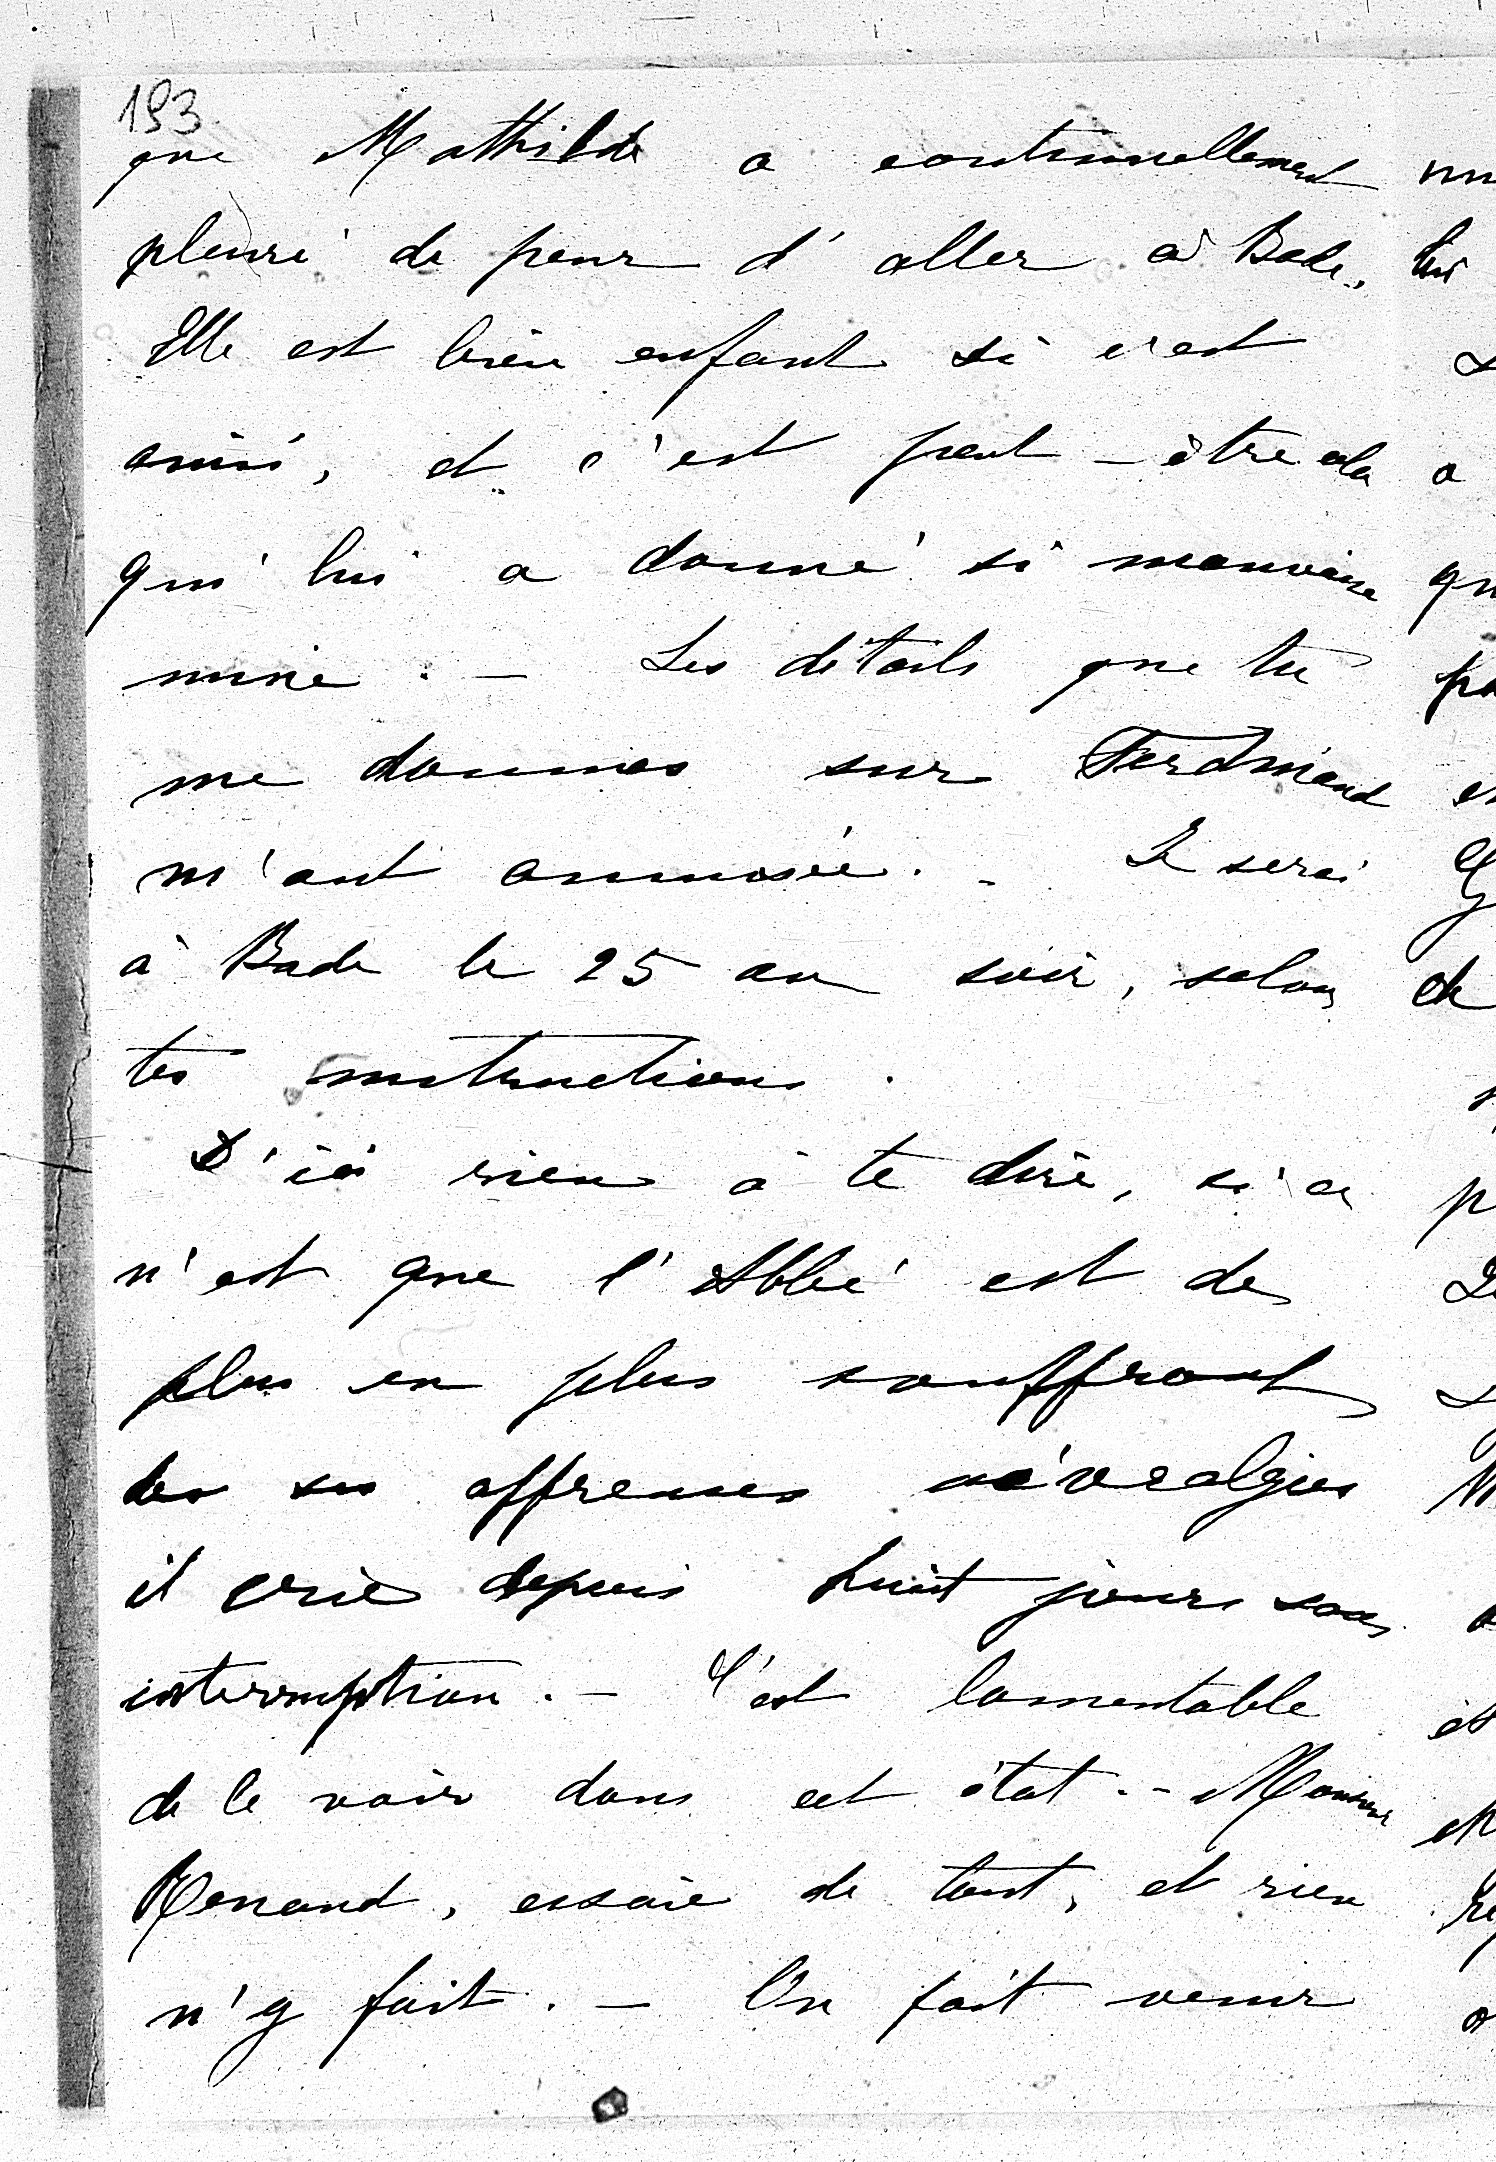 193.
que Mathilde a continuellement
pleuré de peur d'aller à Bade.,
Elle est bien enfant si c'est
ainsi, et c'est peut-être cela
qui lui a donné si mauvaise
mine. - Les détails que tu
me donnes sur Ferdinand
m'ont amusée. - Je serai
à Bade le 25 au soir, selon
tes instructions.
D'ici rien à te dire, si ce
n'est que l'Abbé est de
plus en plus souffrant
de ses affreuses névralgies
il crie depuis huit jours sans
interruption. - C'est lamentable
de le voir dans cet état. - Monsieur
Renand, essaie de tout, et rien
n'y fait. - On fait venir